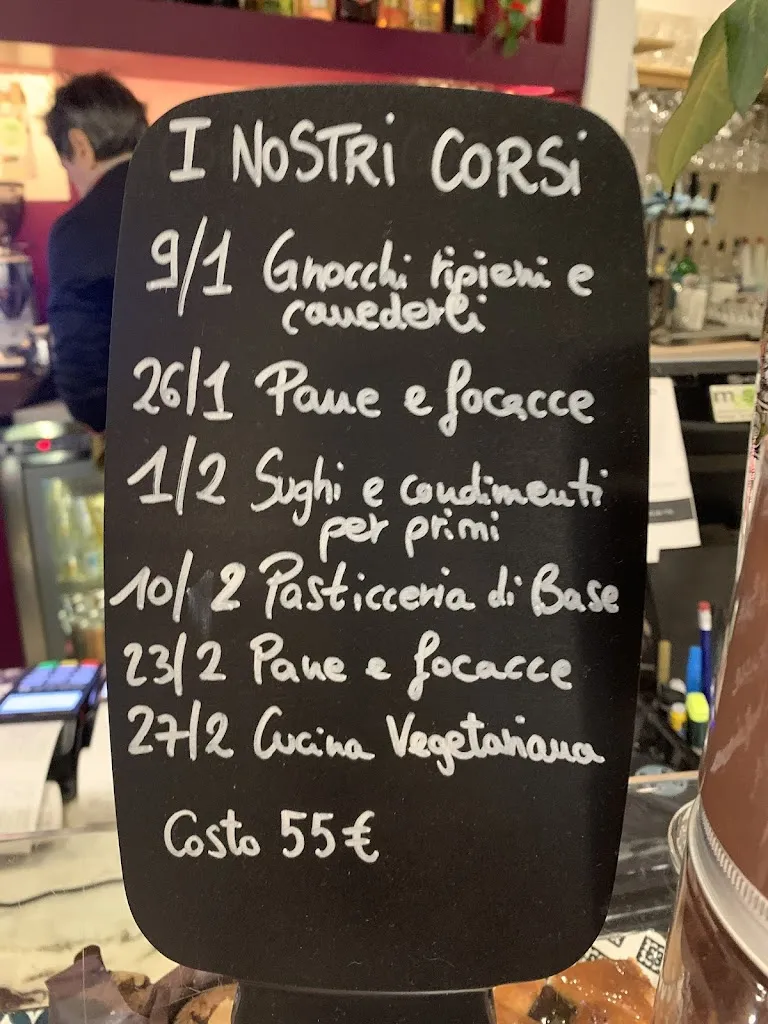 I NOSTRI CORSI
9/1 Gnocchi ripieni e
canederli
26/1 Pane e focacce
1/2 Sughi e condimenti
per primi
10/2 Pasticceria di Base
23/2 Pane e focacce
27/2 Cucina Vegetariana
Costo 55€